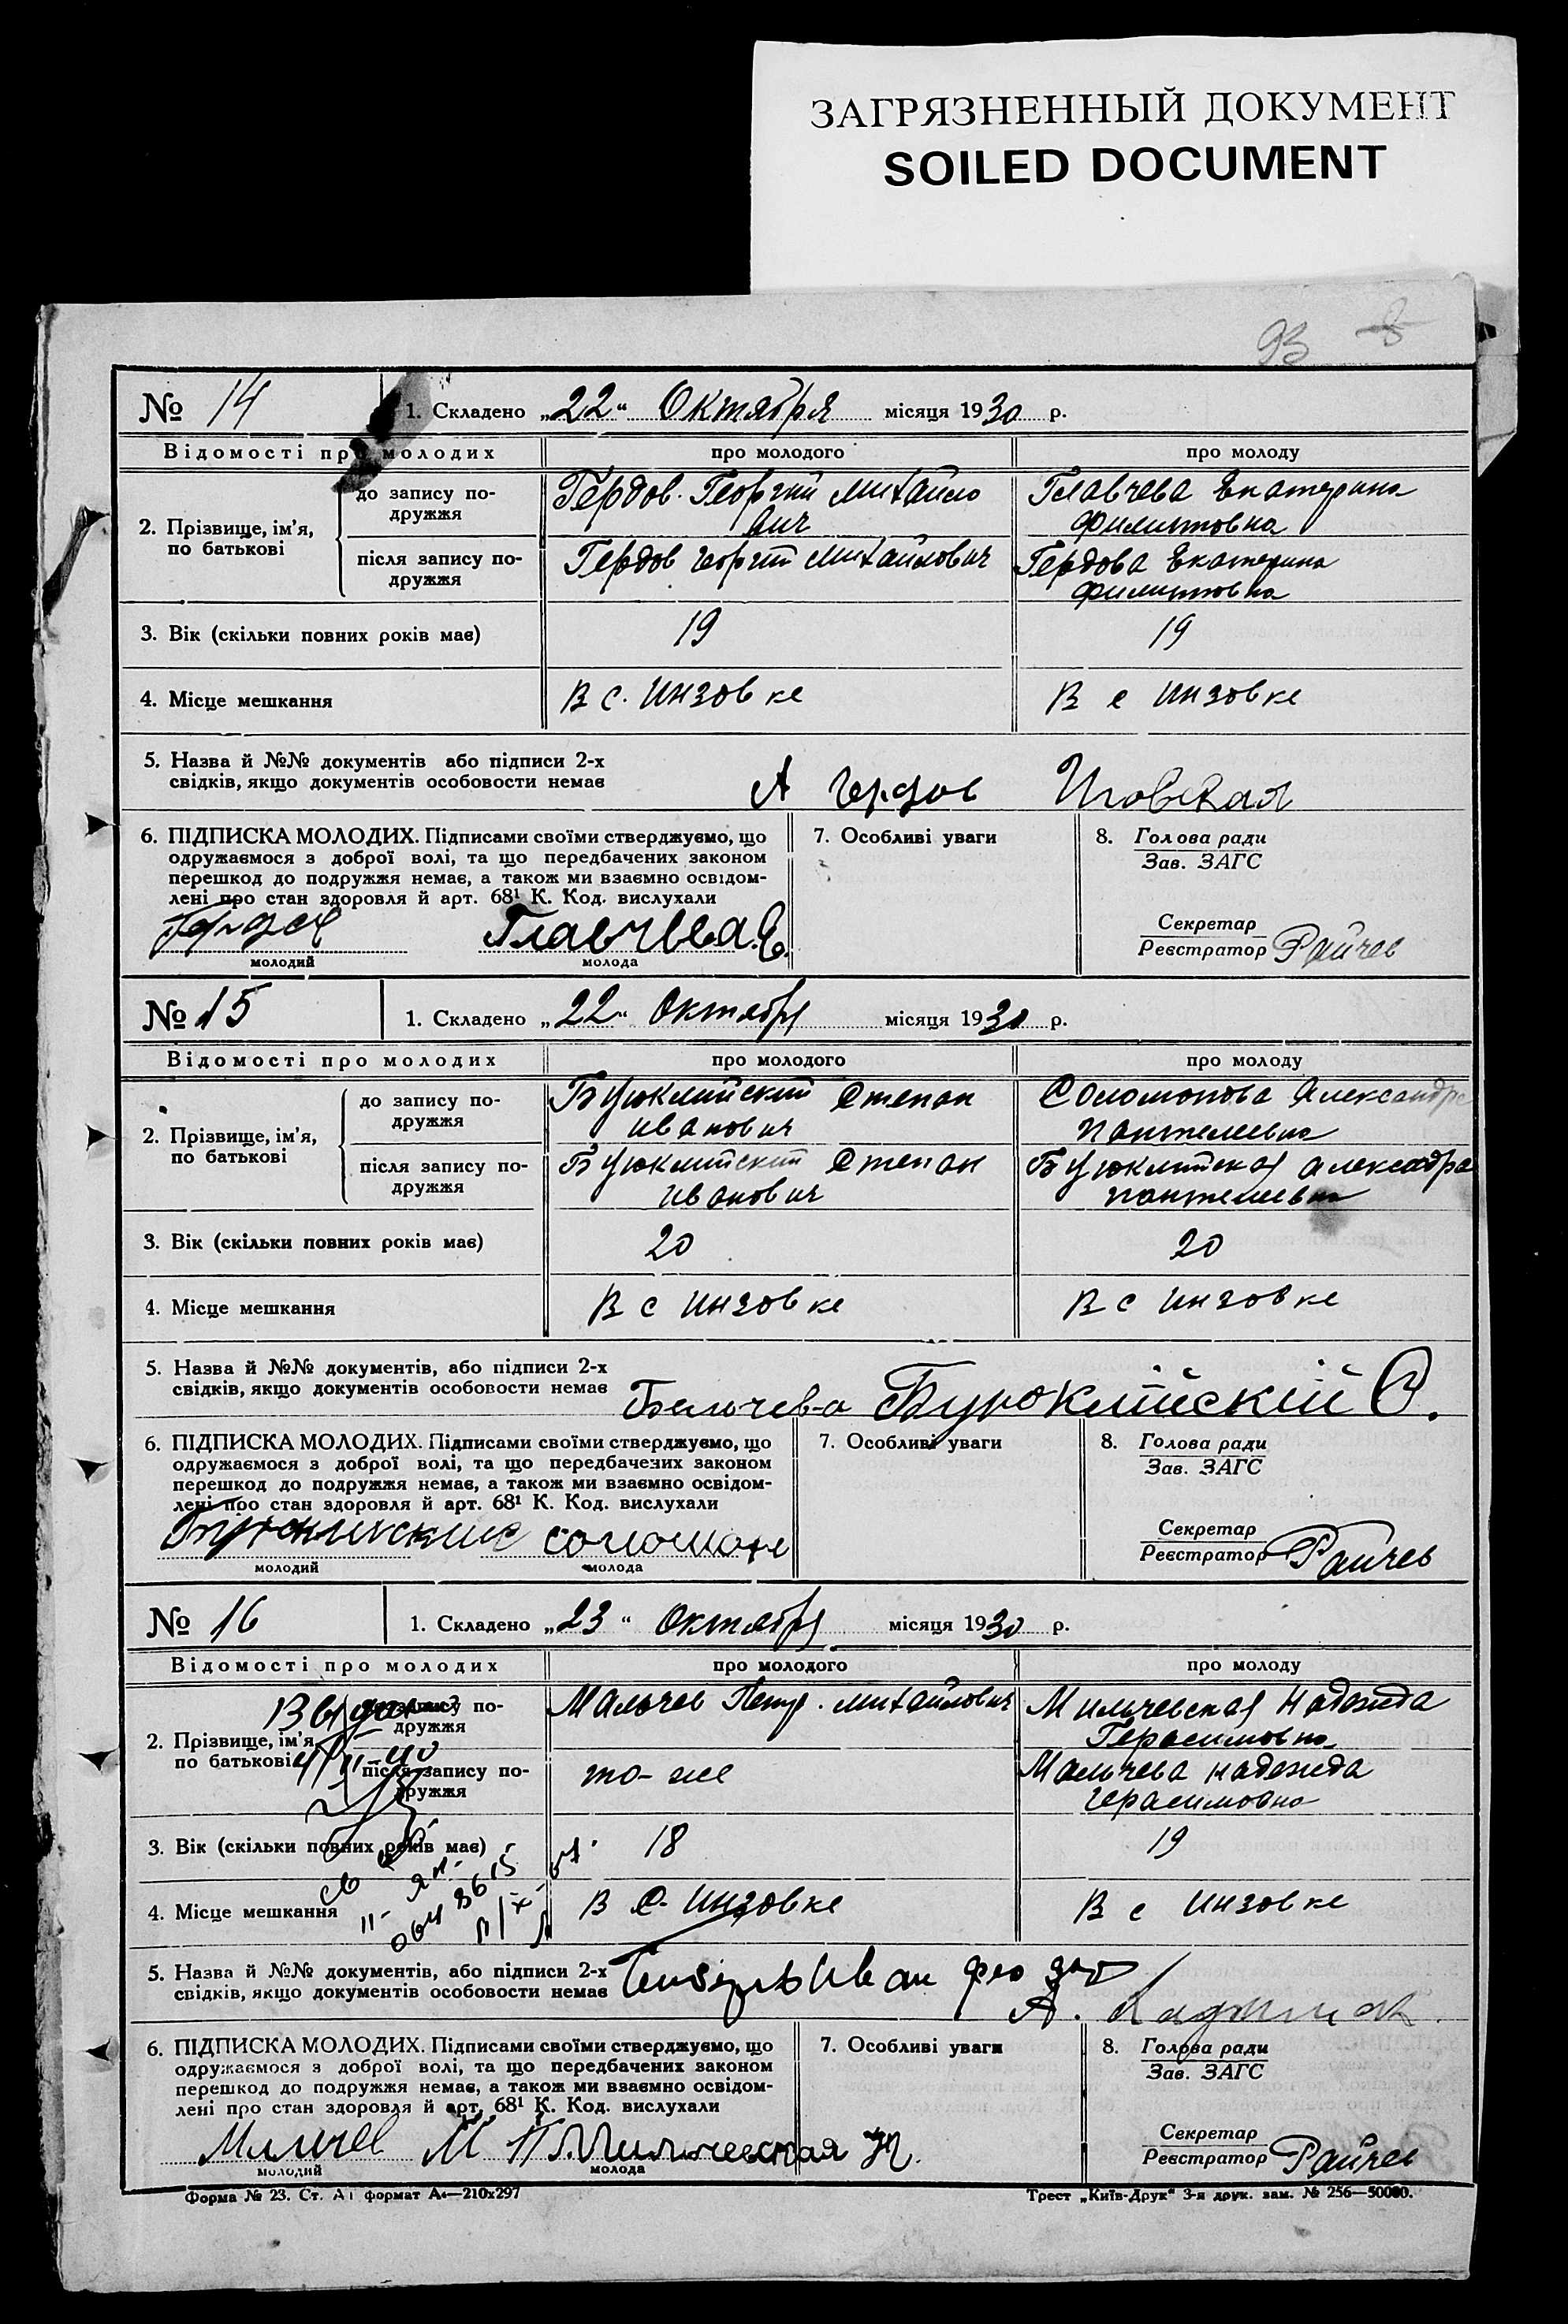 ЗАГРЯЗНЕННЫЙ ДОКУМЕНТ
SOILED DOCUMENT
93 8
№ 14 1. Складено „22“ Октября місяця 1930 р.
Відомості про молодих про молодого про молоду
2. Прізвище, ім’я, по батькові
до запису по-дружжя
Гердов Георгий Михайло
вич
Главчева Екатерина
Филиповна
після запису по-дружжя
Гердов Георгий Михайлович
Гердова Екатерина
Филиповна
3. Вік (скільки повних років має) 19 19
4. Місце мешкання В с. Инзовке В с Инзовке
5. Назва й №№ документів або підписи 2-х
свідків, якщо документів особовости немає
А Гердов
6. ПІДПИСКА МОЛОДИХ. Підписами своїми стверджуємо, що
одружаємося з доброї волі, та що передбачених законом
перешкод до подружжя немає, а також ми взаємно освідом-
лені про стан здоровля й арт. 68¹ К. Код. вислухали
Главчева Е.
молодий молода
7. Особливі уваги
8. Голова ради
Зав. ЗАГС
Секретар
Реєстратор Райчев
№ 15 1. Складено „22“ Октября місяця 1930 р.
Відомості про молодих про молодого про молоду
2. Прізвище, ім’я,
по батькові
до запису по-
дружжя
Буюклийский Степан
Иванович
Соломонова Александра
Пантелеевна
після запису по-
дружжя
Буюклийский Степан
Иванович
Буюклийская Александра
Пантелеевна
3. Вік (скільки повних років має) 20 20
4. Місце мешкання В с Инзовке В с Инзовке
5. Назва й №№ документів, або підписи 2-х
свідків, якщо документів особовости немає
Бельчева Буюклійскій С.
6. ПІДПИСКА МОЛОДИХ. Підписами своїми стверджуємо, що
одружаємося з доброї волі, та що передбачених законом
перешкод до подружжя немає, а також ми взаємно освідом-
лені про стан здоровля й арт. 68¹ К. Код. вислухали
молодий молода
7. Особливі уваги
8. Голова ради
Зав. ЗАГС
Секретар
Реєстратор Райчев
№ 16 1. Складено „23“ Октября місяця 1930 р.
Відомості про молодих про молодого про молоду
2. Прізвище, ім’я,
по батькові
до запису по-
дружжя
Мальчев Петр Михайлович
Мильчевская Надежда
Герасимовна
після запису по-
дружжя
то-же
Мальчева Надежда
Герасимовна
3. Вік (скільки повних років має) 18 19
4. Місце мешкання В с. Инзовке В с Инзовке
5. Назва й №№ документів, або підписи 2-х
свідків, якщо документів особовости немає
Иван
6. ПІДПИСКА МОЛОДИХ. Підписами своїми стверджуємо, що
одружаємося з доброї волі, та що передбачених законом
перешкод до подружжя немає, а також ми взаємно освідом-
лені про стан здоровля й арт. 68¹ К. Код. вислухали
Мильчевская Н.
молодий молода
7. Особливі уваги
8. Голова ради
Зав. ЗАГС
Секретар
Реєстратор Райчев
Форма № 23. Ст. А і формат А₄—210х297
Трест „Київ-Друк“ 3-я друк. зам. № 256—50000.